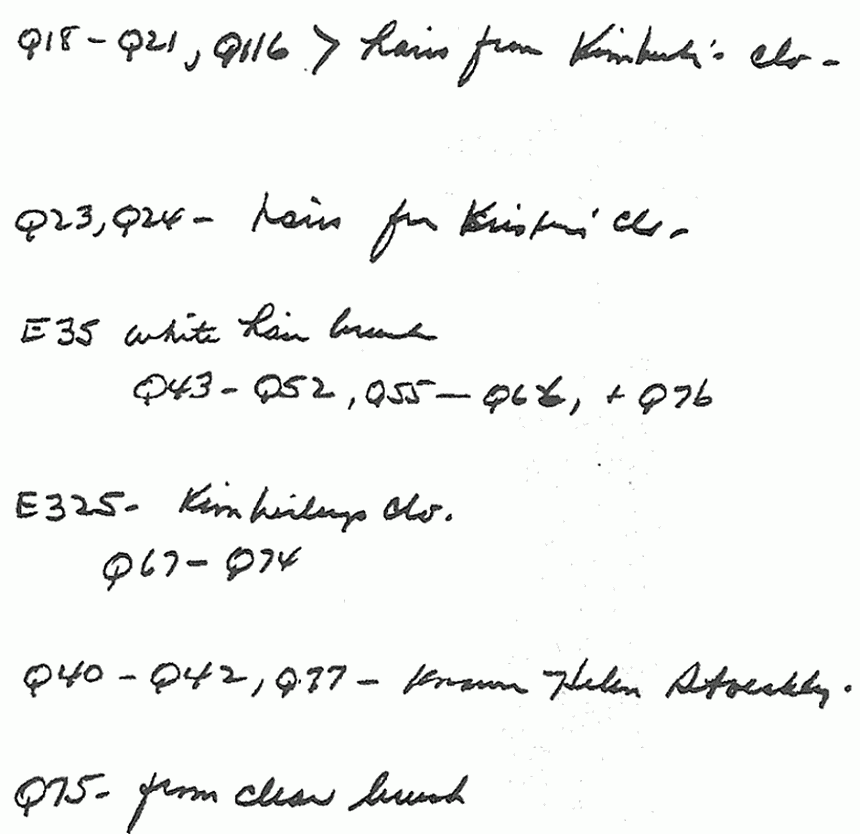 Q18 - Q21, Q116 > hairs from Kimberly's clo -
Q23, Q24 - hairs from Kristen's clo -
E35 white hair brush
Q43 - Q52, Q55 - Q66, + Q76
E325 - Kimberlys clo.
Q67 - Q74
Q40 - Q42, Q77 - Known Helen Stoeckley.
Q75 - from clear brush